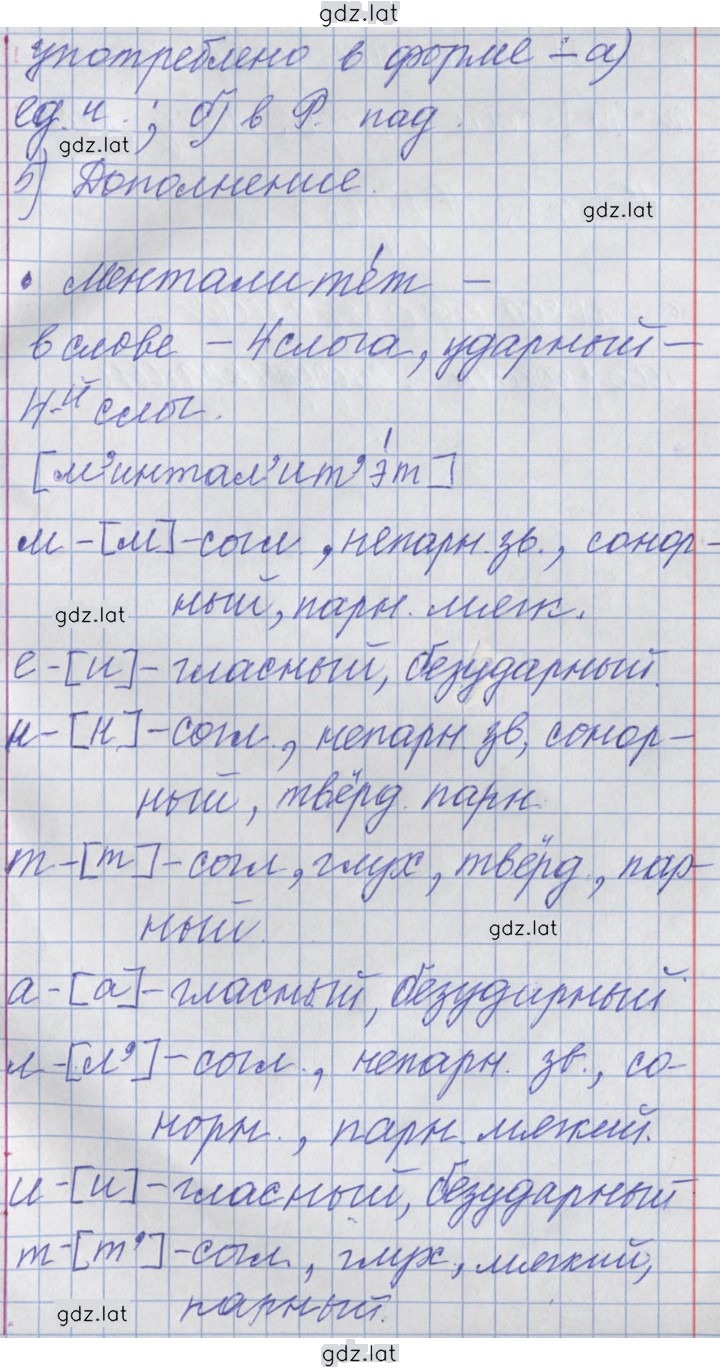 gdz.lat
употреблено в форме – а)
ед. ч.; б) в Р. пад.
gdz.lat
5) Дополнение.
gdz.lat
• менталите́т –
в слове – 4 слога, ударный –
4-й слог.
[м'интал'ит'э́т]
м – [м] – согл., непарн. зв., сонор-
ный, парн. мягк.
gdz.lat
е – [и] – гласный, безударный.
н – [н] – согл., непарн. зв, сонор-
ный, твёрд. парн.
т – [т] – согл, глух, твёрд., пар-
ный.
gdz.lat
а – [а] – гласный, безударный
л – [л'] – согл., непарн. зв., со-
норн., парн. мягкий.
и – [и] – гласный, безударный
т – [т'] – согл., глух., мягкий,
парный.
gdz.lat
gdz.lat